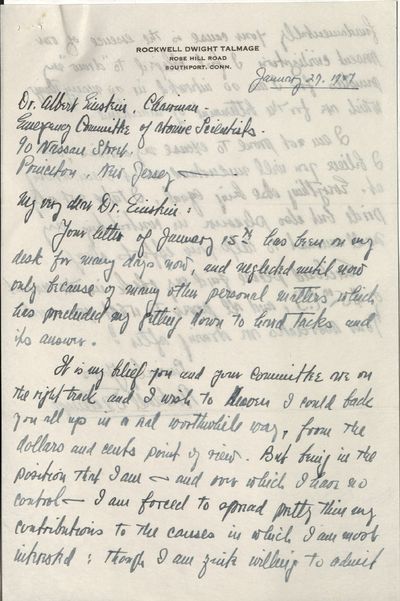 ROCKWELL DWIGHT TALMAGE
ROSE HILL ROAD
SOUTHPORT, CONN.
January 29, 1947
Dr. Albert Einstein, Chairman.
Emergency Committee of Atomic Scientists.
90 Nassau Street,
Princeton, New Jersey
My very dear Dr. Einstein:
Your letter of January 15th has been on my
desk for many days now, and neglected until now
only because of many other personal matters which
has precluded my getting down to hard tacks and
its answer.
It is my belief you and your Committee are on
the right track and I wish to Heaven I could back
you all up in a real worthwhile way, from the
dollars and cents point of view. But being in the
position that I am — and over which I have no
control — I am forced to spread pretty thin my
contributions to the causes in which I am most
interested; though I am quite willing to admit